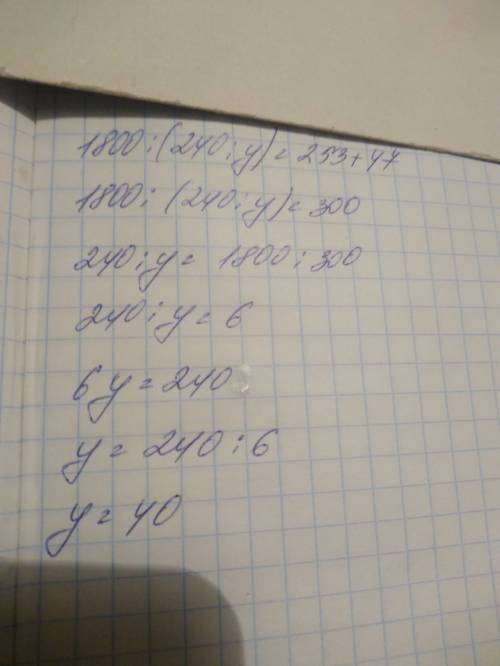 1800:(240:y)=253+47
1800:(240:y)=300
240:y=1800:300
240:y=6
6y=240
y=240:6
y=40